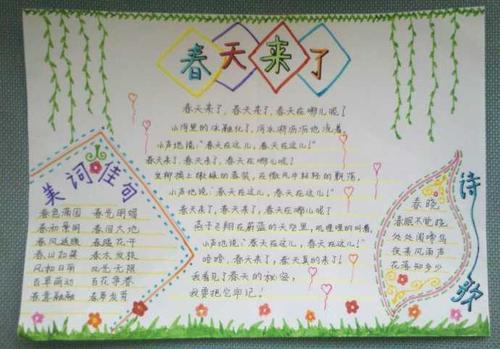 春天来了
春天来了，春天来了，春天在哪儿呢？
小河里的冰融化了，河水哗哗地流着，
小声地说：“春天在这儿，春天在这儿！”
春天来了，春天来了，春天在哪儿呢？
柳柳换上嫩绿的春装，在微风中轻轻的飘荡，
小声地说：“春天在这儿，春天在这儿！”
春天来了，春天来了，春天在哪儿呢？
燕子飞翔在蔚蓝的天空里，叽哩哩的叫着，
小声地说：“春天在这儿，春天在这儿！”
哈哈，春天来了，春天真的来了！
我看见了春天的秘密，
我要把它牢记！
美词佳句
春色满园 春光明媚
春初景明 春回大地
春风送暖 春暖花开
春山如笑 春水
风和日丽 风光无限
百草萌动 百花争春
春意融融 春芽
诗歌
春晓
春眠不觉晓
处处闻啼鸟
夜来风雨声
花落知多少